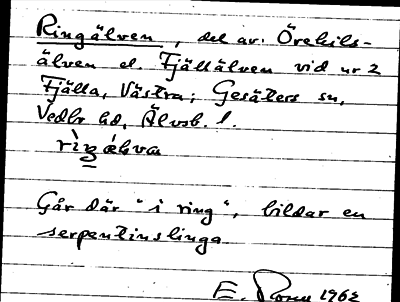 Ringälven, del av Örekils-
älven el. Fjällälven vid nr 2
Fjälla, Västra; Gesäters sn,
Vedbo hd, Älvsb. l.
Går där "i ring", bildar en
serpentinslinga
E. 1962